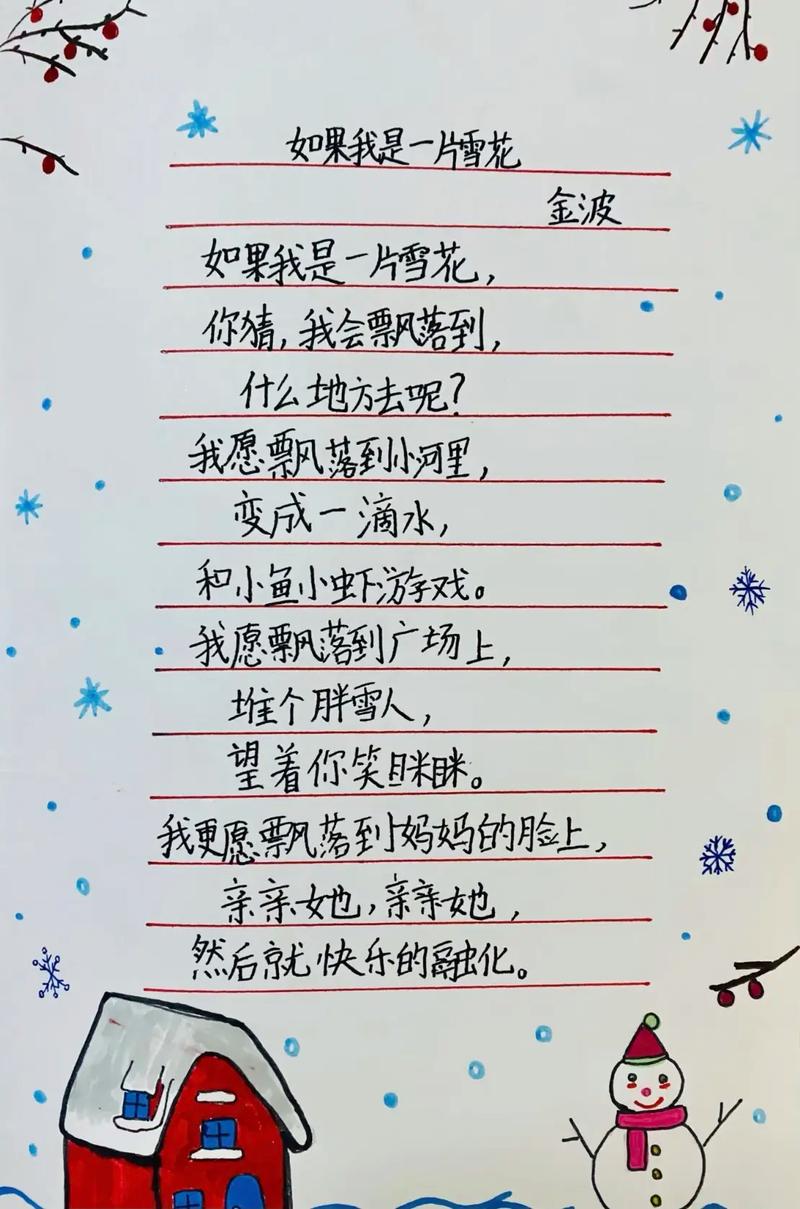 如果我是一片雪花
金波
如果我是一片雪花，
你猜，我会飘落到，
什么地方去呢？
我愿飘落到小河里，
变成一滴水，
和小鱼小虾游戏。
我愿飘落到广场上，
堆个胖雪人，
望着你笑眯眯。
我更愿飘落到妈妈的脸上，
亲亲她，亲亲她，
然后就快乐的融化。